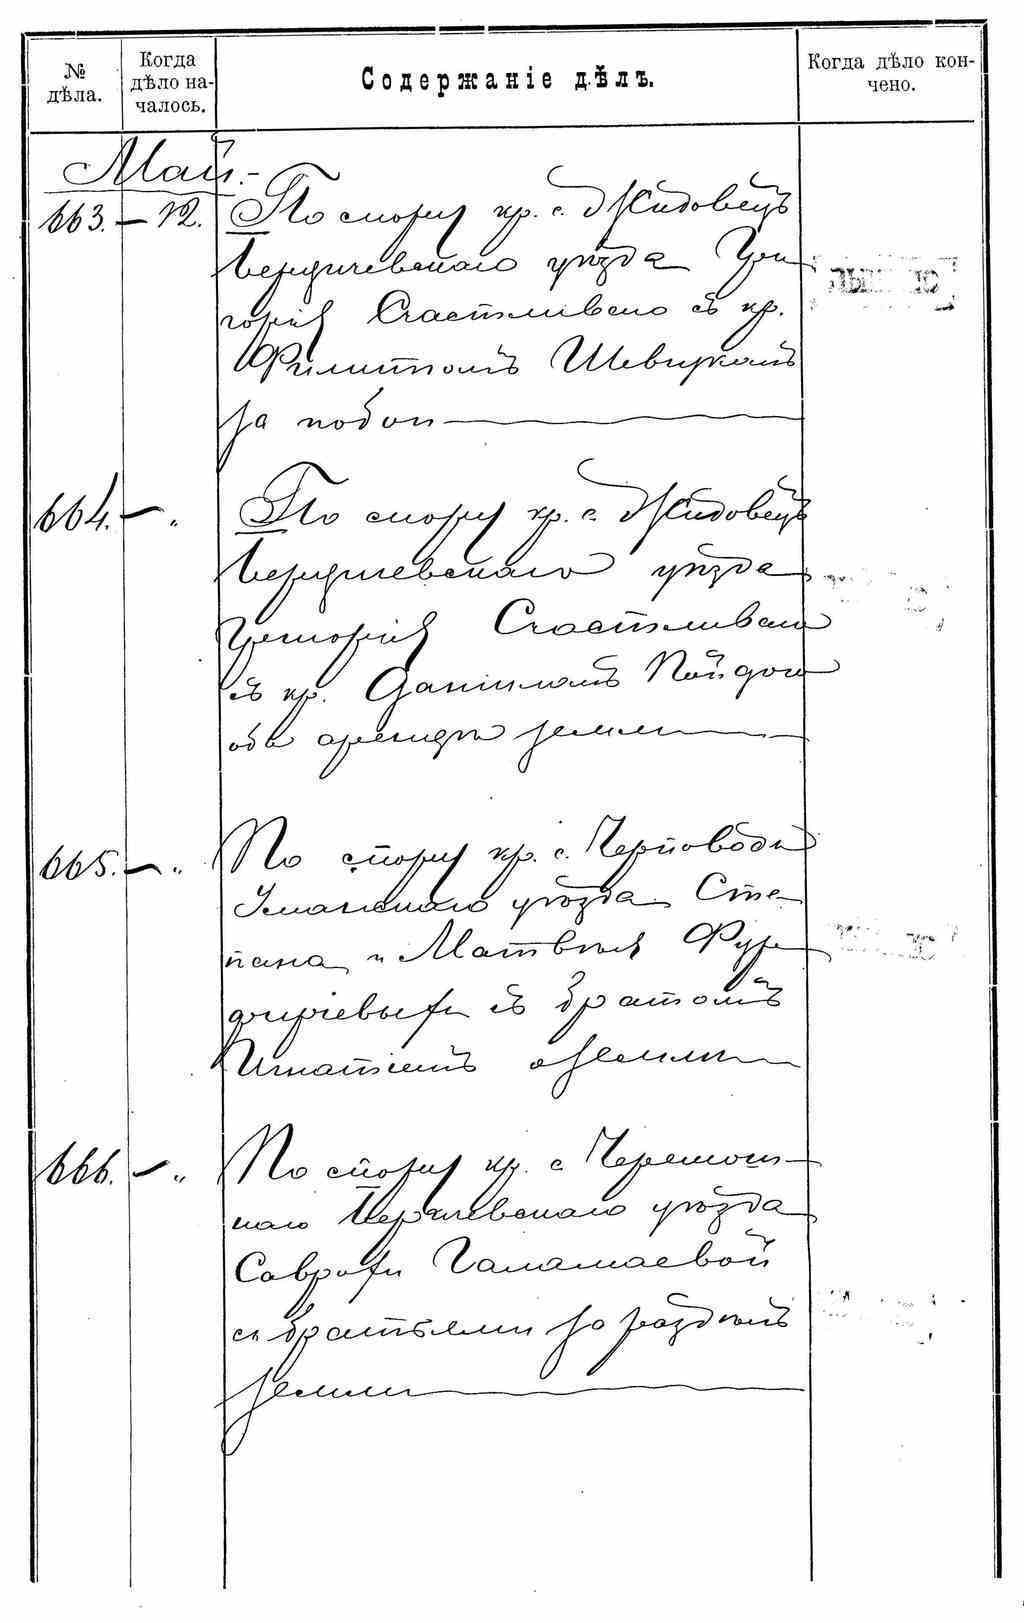 № дѣла.
Когда дѣло началось.
Содержаніе дѣлъ.
Когда дѣло кончено.
Май.-
663. — 12. По спору кр. с. Жидовецъ
Бердичевскаго уѣзда Гри
горія Счастливаго съ кр.
Филиппомъ Шевчукомъ
за побои
664. — „ По спору кр. с. Жидовецъ
Бердичевскаго уѣзда
Григорія Счастливаго
съ кр. Даніиломъ
объ аренды земли
665. — „ По спору кр. с. Черповоды
Уманскаго уѣзда Сте
пана и Матвѣя
съ братомъ
Игнатіемъ о земли
666. — „ По спору кр. с Черемош-
наго Бердичевскаго уѣзда
Галамаевой
съ братьями за раздѣлъ
земли